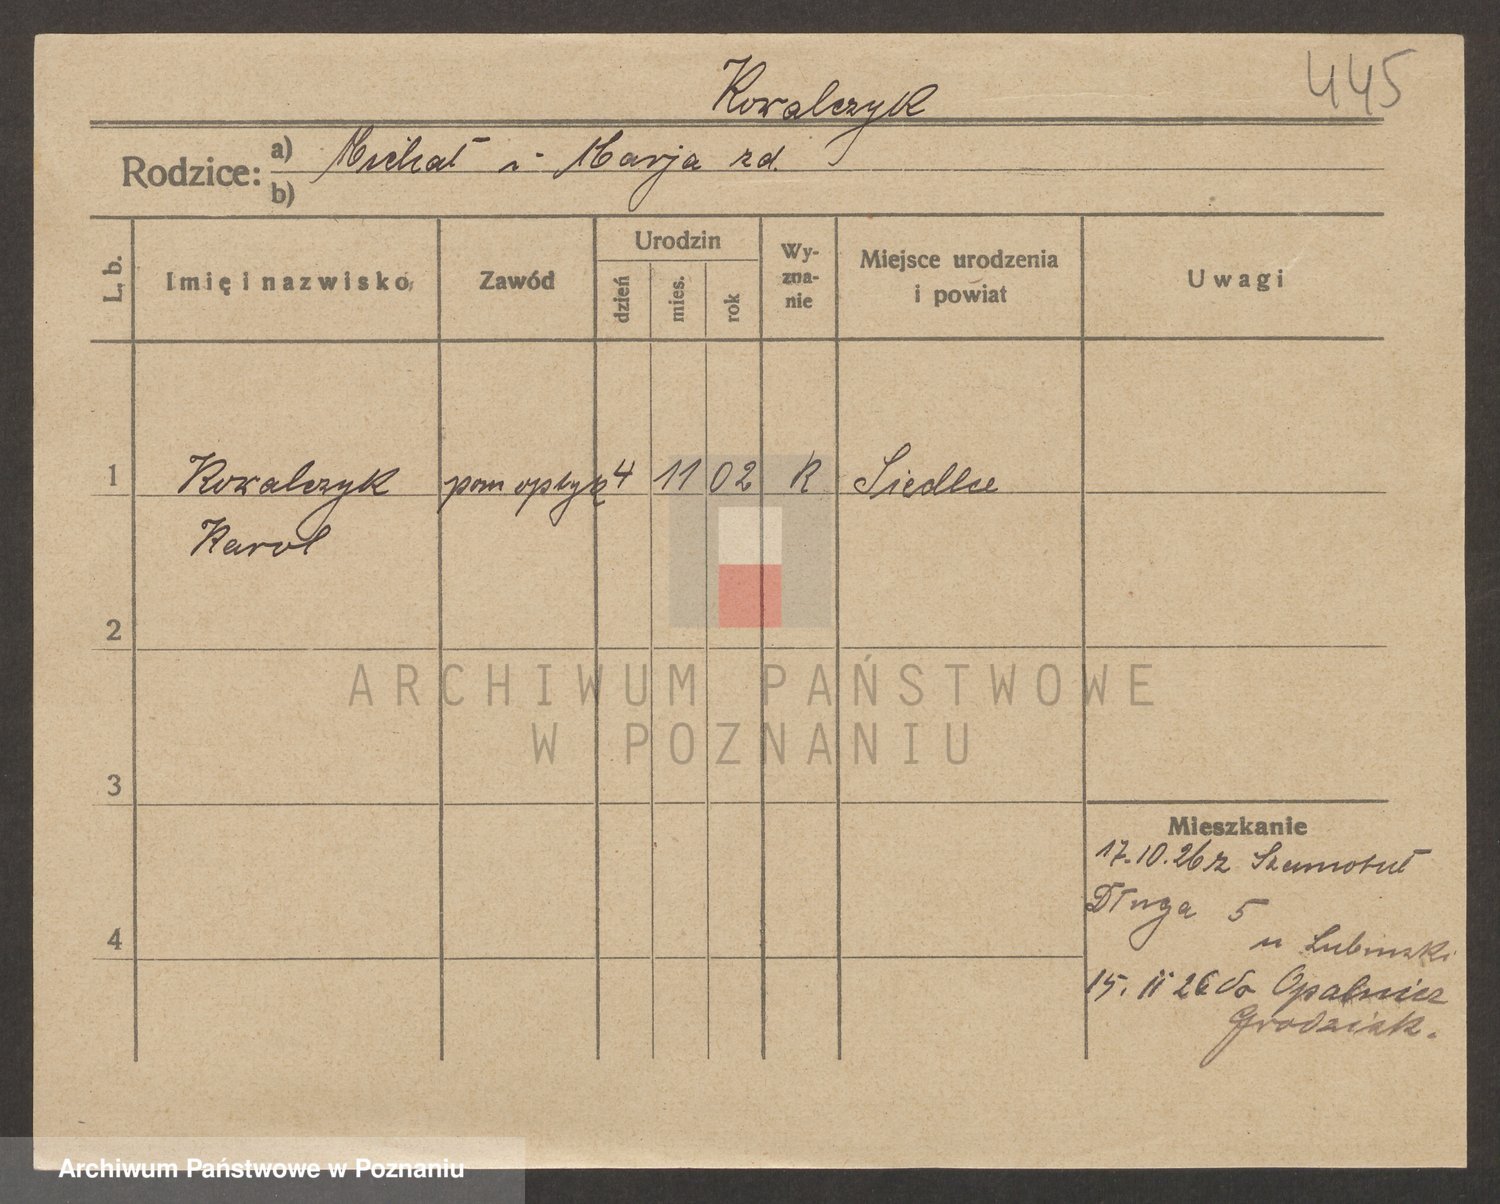 Kowalczyk
445
Rodzice:
a) Michał i Marja zd.
b)
L. b.
Imię i nazwisko
Zawód
Urodzin
dzień
mies.
rok
Wy-
zna-
nie
Miejsce urodzenia
i powiat
Uwagi
1 Kowalczyk pom optyk 4 11 02 R Siedlce
Karol
2
ARCHIWUM PAŃSTWOWE
W POZNANIU
3
Mieszkanie
17.10.26 z Szamotuł
Długa 5
u Lubinski
4
15. 11 26 do Opalenicz
Grodzisk.
Archiwum Państwowe w Poznaniu